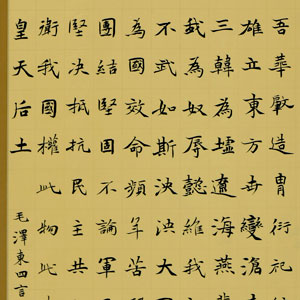 吾華肇造胄衍祀
雄立東方世變滄
三韓為墟遼海燕
我為奴辱懿維我
不武如斯泱泱大
為國效命頻年苦
團結堅固不論軍
堅決抵抗民主共
衛我國權此物此
皇天后土
毛澤東四言